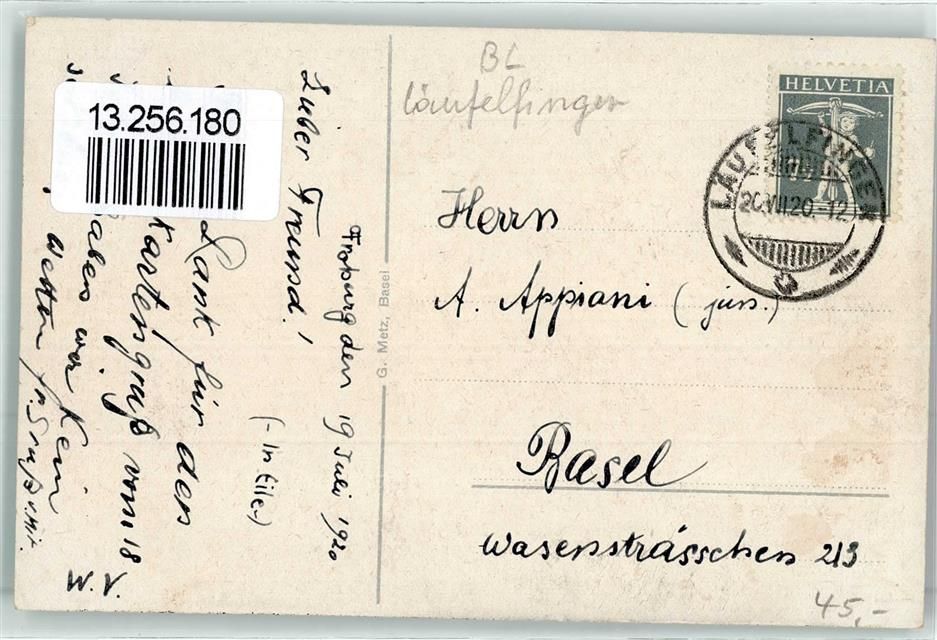 BL
Läufelfingen
HELVETIA
LÄUFELFINGEN
20.VII.20.-12
13.256.180
Froburg den 19 Juli 1920
(- In Eile -)
Lieber Freund!
Dank für den
Kartengruß vom 18
aber war kein
Wetter fr. Gruß v. Hit.
W. V.
G. Metz, Basel
Herrn
A. Appiani (jun.)
Basel
Wasensträsschen 213
45,-